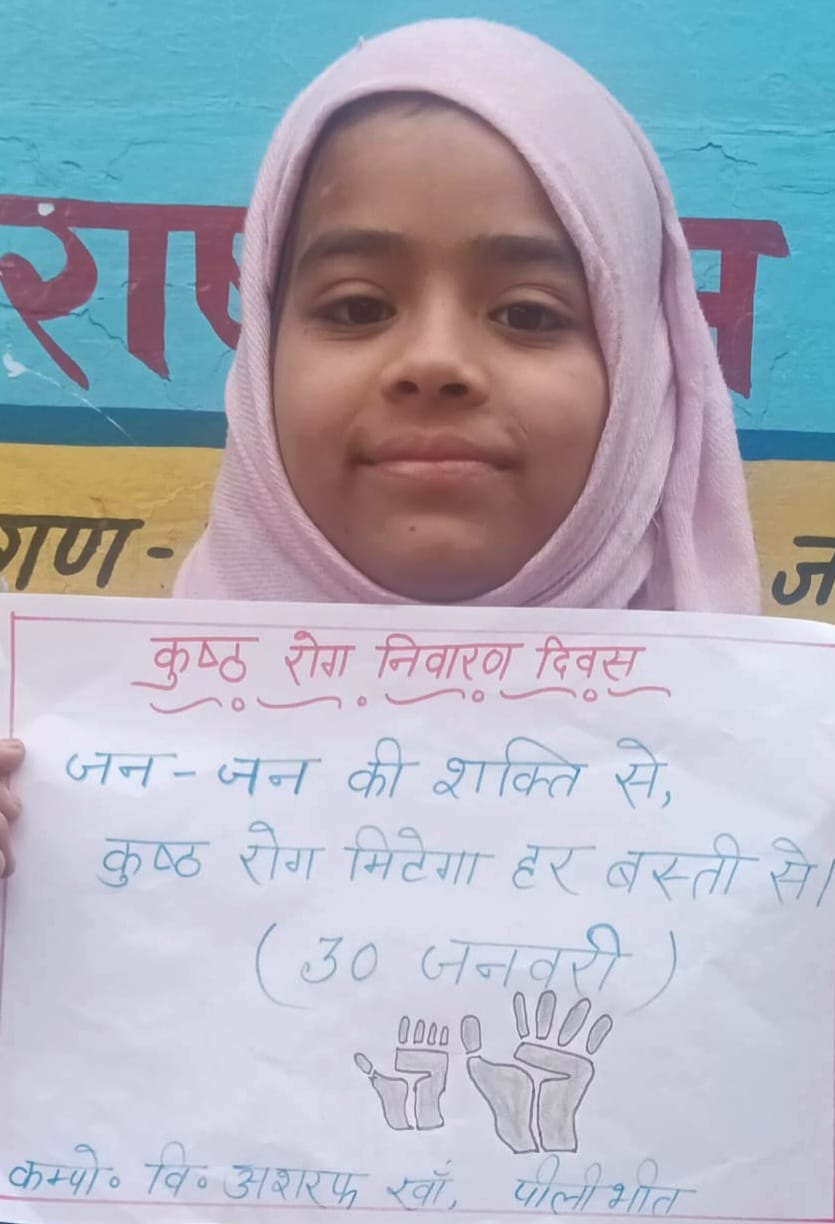 राष
गण -
ज
कुष्ठ रोग निवारण दिवस
जन - जन की शक्ति से,
कुष्ठ रोग मिटेगा हर बस्ती से।
( 30 जनवरी )
कम्पो॰ वि॰ अशरफ खाँ, पीलीभीत